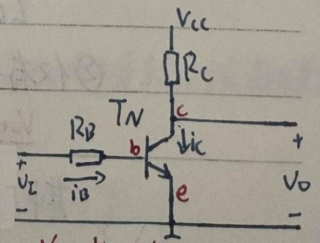 Vcc
Rc
TN
c
RB
b
ic
+
+
VI
iB
e
Vo
-
-